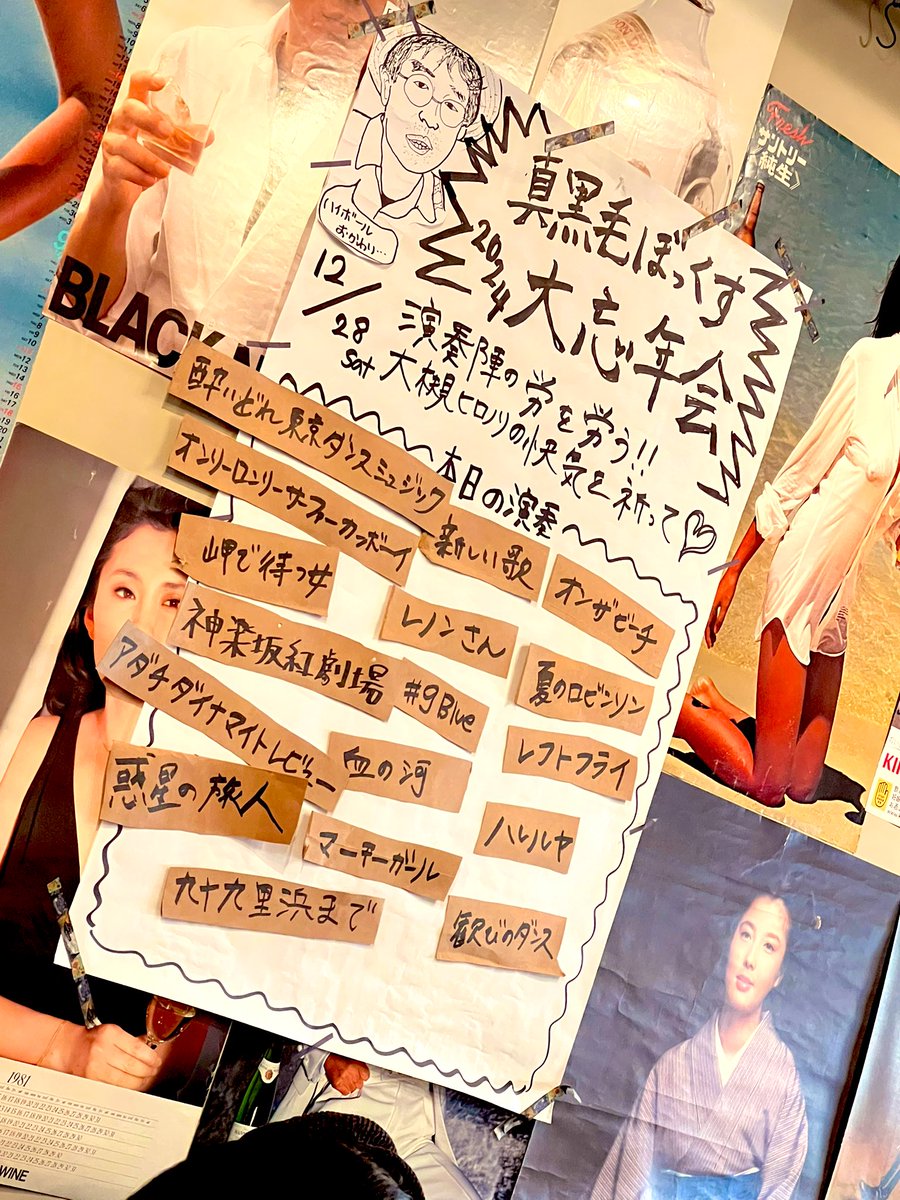 真黒毛ぼっくす
2024 大忘年会
ハイボール
おかわり…
12/28 sat
演奏陣の労を労う!!
大槻ヒロノリの快気を祈って♡
〜本日の演奏〜
酔いどれ東京ダンスミュジック
オンリーロンリーサーファーカンボーイ
新しい歌
オンザビーチ
岬で待つ女
レノンさん
神楽坂紅劇場
#9Blue
夏のロビンソン
アダチダイナマイトレビュー
血の河
レフトフライ
惑星の旅人
マーチーガール
ハレルヤ
九十九里浜まで
歓びのダンス
BLACK N
Fresh
サントリー
純生〉
KI
1981
WINE